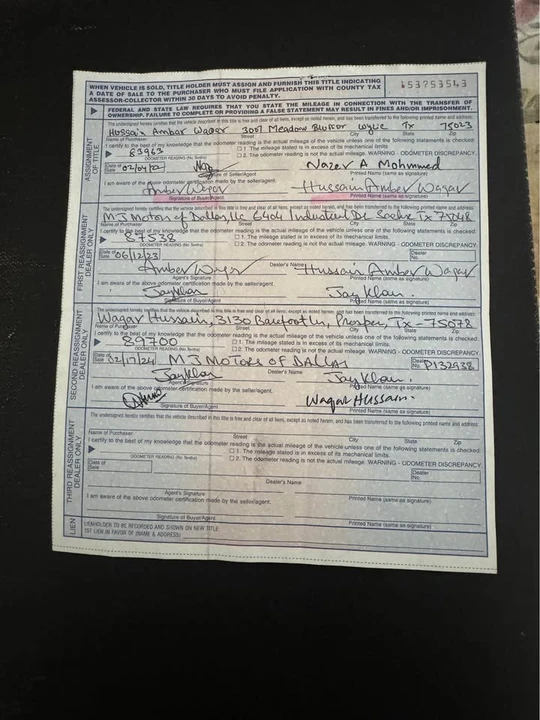 WHEN VEHICLE IS SOLD, TITLE HOLDER MUST ASSIGN AND FURNISH THIS TITLE INDICATING
A DATE OF SALE TO THE PURCHASER WHO MUST FILE APPLICATION WITH COUNTY TAX
ASSESSOR-COLLECTOR WITHIN 30 DAYS TO AVOID PENALTY.
FEDERAL AND STATE LAW REQUIRES THAT YOU STATE THE MILEAGE IN CONNECTION WITH THE TRANSFER OF
OWNERSHIP. FAILURE TO COMPLETE OR PROVIDING A FALSE STATEMENT MAY RESULT IN FINES AND/OR IMPRISONMENT.
ASSIGNMENT OF TITLE
The undersigned hereby certifies that the vehicle described in this title is free and clear of all liens, except as noted herein, and has been transferred to the following printed name and address:
Hussain Ambar Waqar 3051 Meadow Bluff Wylie Tx
Name of Purchaser Street City State Zip
I certify to the best of my knowledge that the odometer reading is the actual mileage of the vehicle unless one of the following statements is checked:
83963 1. The mileage stated is in excess of its mechanical limits.
ODOMETER READING (No Tenths) 2. The odometer reading is not the actual mileage. WARNING - ODOMETER DISCREPANCY
Date of Sale Nazer A Mohmmed
of Seller/Agent Printed Name (same as signature)
I am aware of the above odometer certification made by the seller/agent.
Amber Waqar Hussain Amber Waqar
Signature of Buyer/Agent Printed Name (same as signature)
FIRST REASSIGNMENT DEALER ONLY
The undersigned hereby certifies that the vehicle described in this title is free and clear of all liens, except as noted herein, and has been transferred to the following printed name and address:
MJ Motors of Dallas, llc 6404 Industrial Dr Sachse Tx 75048
Name of Purchaser Street City State Zip
I certify to the best of my knowledge that the odometer reading is the actual mileage of the vehicle unless one of the following statements is checked:
87538 1. The mileage stated is in excess of its mechanical limits.
ODOMETER READING (No Tenths) 2. The odometer reading is not the actual mileage. WARNING - ODOMETER DISCREPANCY
Date of Sale 06/12/23 Dealer's Name Dealer No.
Amber Waqar Hussain Amber Waqar
Agent's Signature Printed Name (same as signature)
I am aware of the above odometer certification made by the seller/agent.
Jay Khan Jay Khan.
Signature of Buyer/Agent Printed Name (same as signature)
SECOND REASSIGNMENT DEALER ONLY
The undersigned hereby certifies that the vehicle described in this title is free and clear of all liens, except as noted herein, and has been transferred to the following printed name and address:
Waqar Hussain, 3130 Barefoot Ln, Prosper, Tx - 75078
Name of Purchaser Street City State Zip
I certify to the best of my knowledge that the odometer reading is the actual mileage of the vehicle unless one of the following statements is checked:
89700 1. The mileage stated is in excess of its mechanical limits.
ODOMETER READING (No Tenths) 2. The odometer reading is not the actual mileage. WARNING - ODOMETER DISCREPANCY
Date of Sale 02/17/24 MJ MOTORS OF DALLAS Dealer No. P132938
Dealer's Name
Jay Khan Jay Khan.
Agent's Signature Printed Name (same as signature)
I am aware of the above odometer certification made by the seller/agent.
Waqar Hussain.
Signature of Buyer/Agent Printed Name (same as signature)
THIRD REASSIGNMENT DEALER ONLY
The undersigned hereby certifies that the vehicle described in this title is free and clear of all liens, except as noted herein, and has been transferred to the following printed name and address:
Name of Purchaser Street City State Zip
I certify to the best of my knowledge that the odometer reading is the actual mileage of the vehicle unless one of the following statements is checked:
1. The mileage stated is in excess of its mechanical limits.
ODOMETER READING (No Tenths) 2. The odometer reading is not the actual mileage. WARNING - ODOMETER DISCREPANCY
Date of Sale Dealer No.
Dealer's Name
Agent's Signature Printed Name (same as signature)
I am aware of the above odometer certification made by the seller/agent.
Signature of Buyer/Agent Printed Name (same as signature)
LIEN
LIENHOLDER TO BE RECORDED AND SHOWN ON NEW TITLE:
1ST LIEN IN FAVOR OF (NAME & ADDRESS)